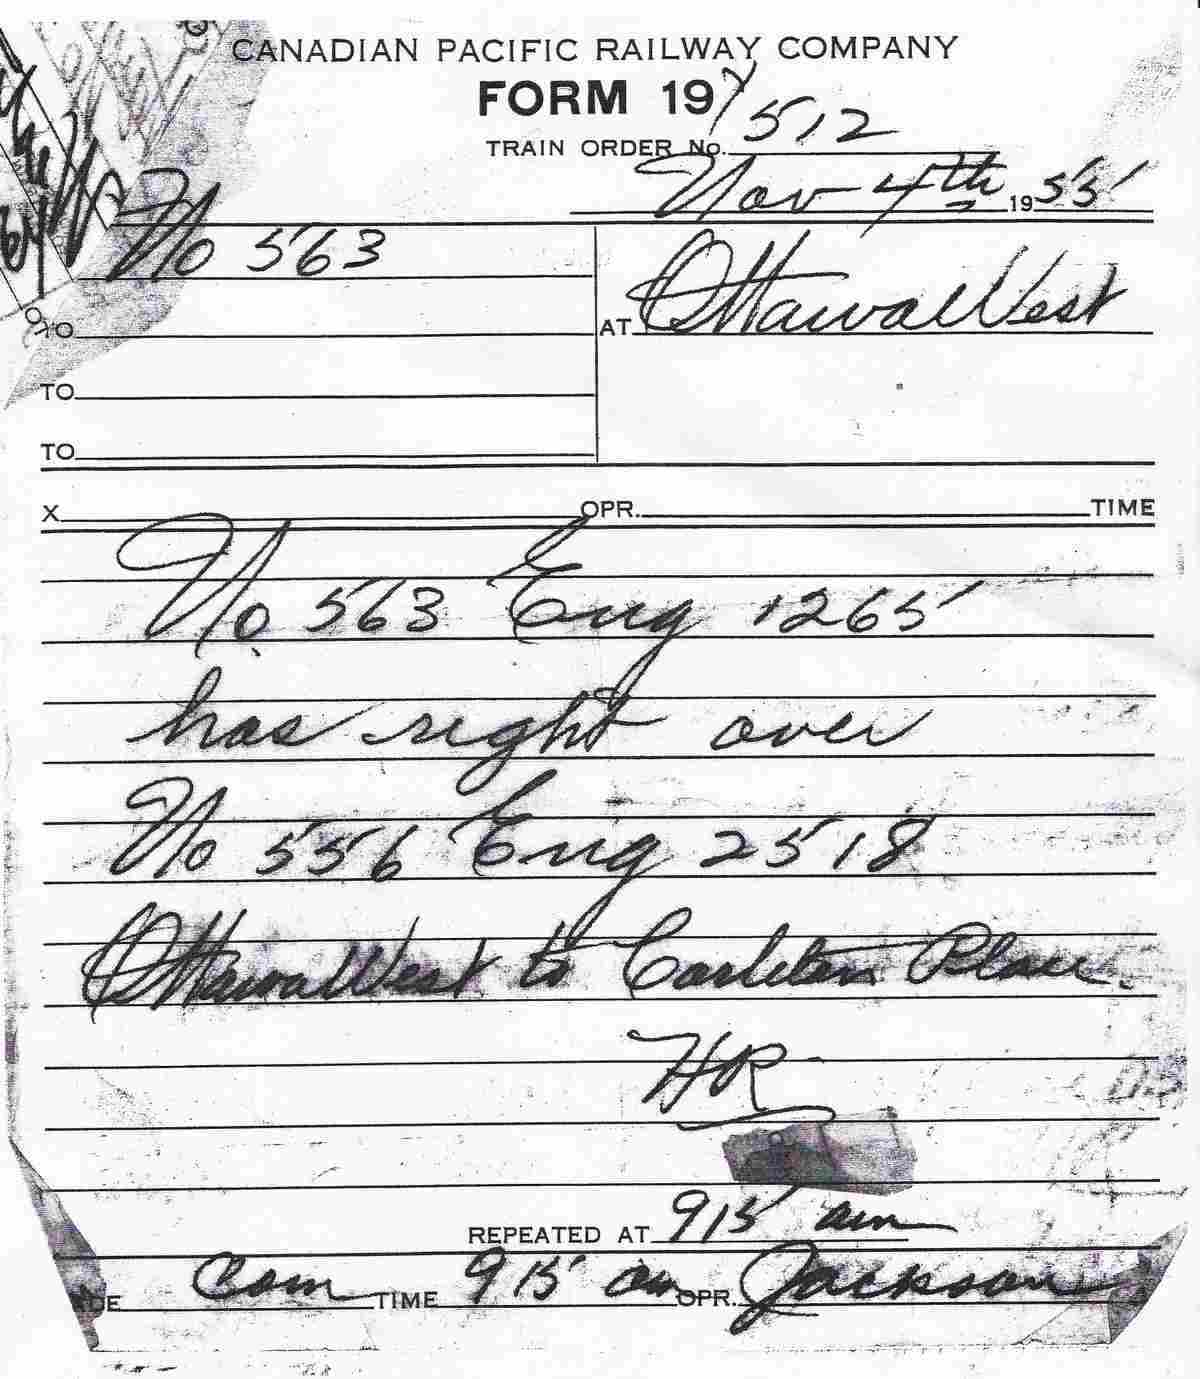 CANADIAN PACIFIC RAILWAY COMPANY
FORM 19 Y
TRAIN ORDER No. 512
Nov 4th 1955
No 563
TO
AT Ottawa West
TO
TO
X OPR. TIME
No 563 Eng 1265
has right over
No 556 Eng 2518
Ottawa West to Carleton Place.
HR
REPEATED AT 915 am
DE Com TIME 915 am OPR. Jackson